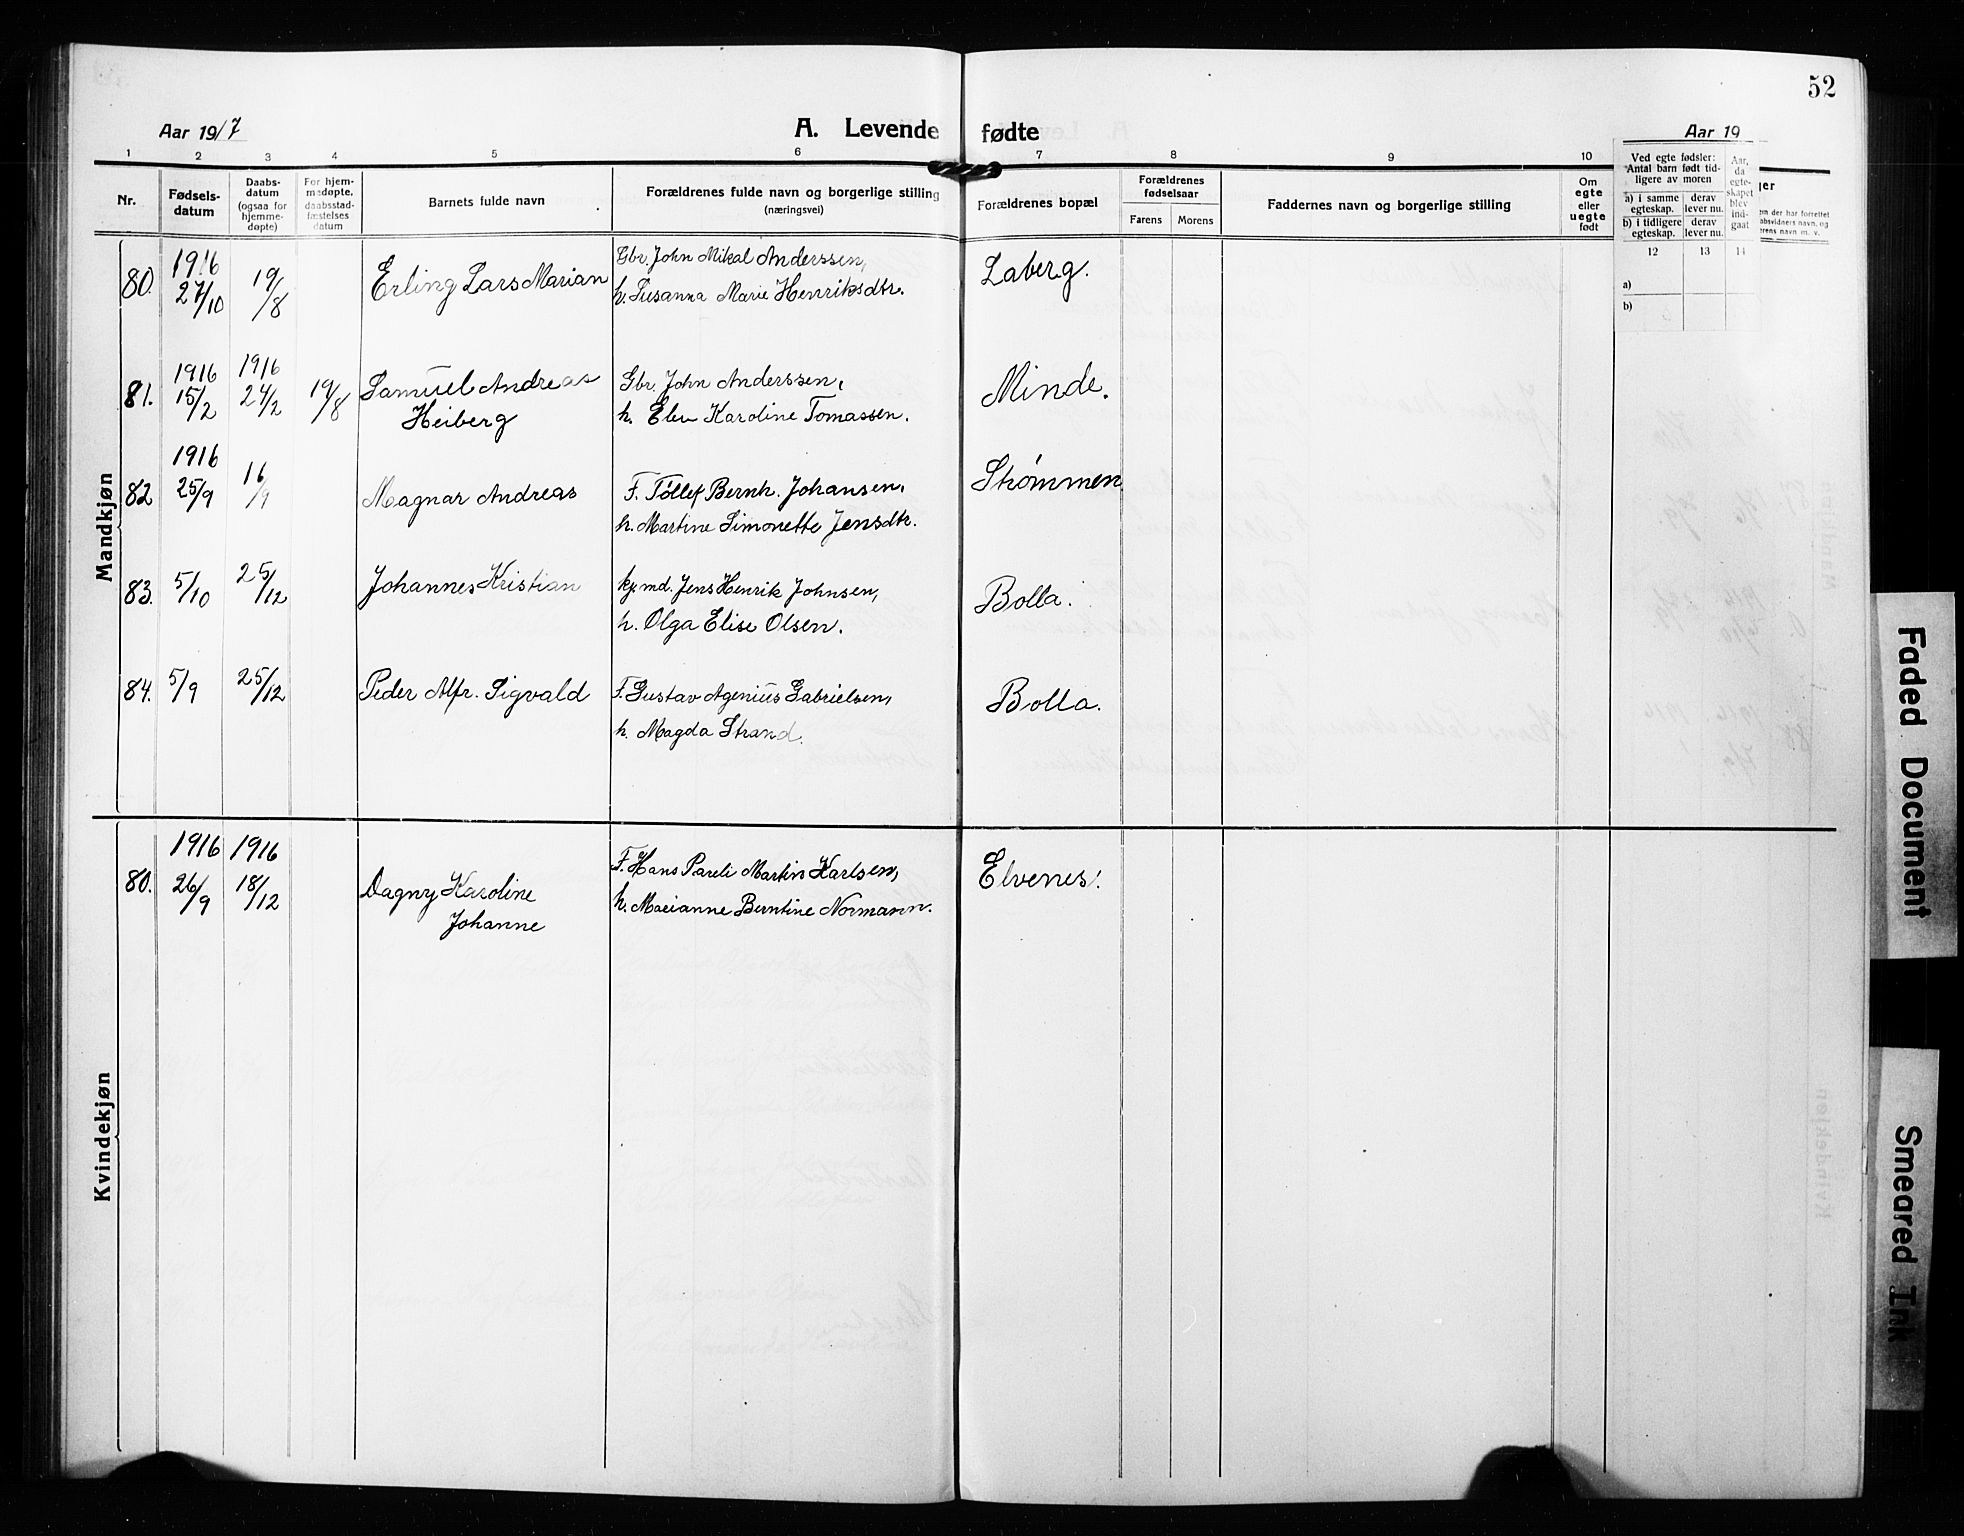 52
Aar 1917
A. Levende fødte
Aar 19
1 2 3 4 5 6 7 8 9 10
Nr.
Fødsels-
datum
Daabs-
datum
(ogsaa for
hjemme-
døpte)
For hjem-
medøpte,
daabsstad-
fæstelses
datum
Barnets fulde navn
Forældrenes fulde navn og borgerlige stilling
(næringsvei)
Forældrenes bopæl
Forældrenes
fødselsaar
Farens Morens
Faddernes navn og borgerlige stilling
Om
egte
eller
uegte
født
Ved egte fødsler:
Antal barn født tid-
ligere av moren
a) i samme
egteskap.
derav
lever nu.
b) i tidligere
egteskap.
derav
lever nu.
Aar,
da
egte-
skapet
blev
ind-
gaat
12 13 14
a)
b)
ger
em der har forrettet
aabsvidners navn, og
rens navn m. v.
Mandkjøn
80. 1916 27/10 19/8 Erling Lars Marian
Gbr. John Mikal Anderssen,
h. Susanna Marie Henriksdtr.
Laberg.
81. 1916 15/2 1916 24/2 19/8 Samuel Andreas
Heiberg
Gbr. John Anderssen,
h. Elen Karoline Tomassen.
Minde.
82 1916 25/9 16/9 Magnar Andreas
F. Tollef Bernh. Johansen,
h. Martine Simonette Jensdtr.
Strømmen
83. 5/10 25/12 Johannes Kristian
kj. md. Jens Henrik Johnsen,
h. Olga Elise Olsen.
Bolla.
84. 5/9 25/12 Peder Alfr. Sigvald
F. Gustav Agenius Gabrielsen,
h. Magda Strand.
Bolla.
Kvindekjøn
80. 1916 26/9 1916 18/12 Dagny Karoline
Johanne
F. Hans Pareli Martin Karlsen,
h. Marianne Berntine Normann.
Elvenes.
Faded Document
Smeared Ink